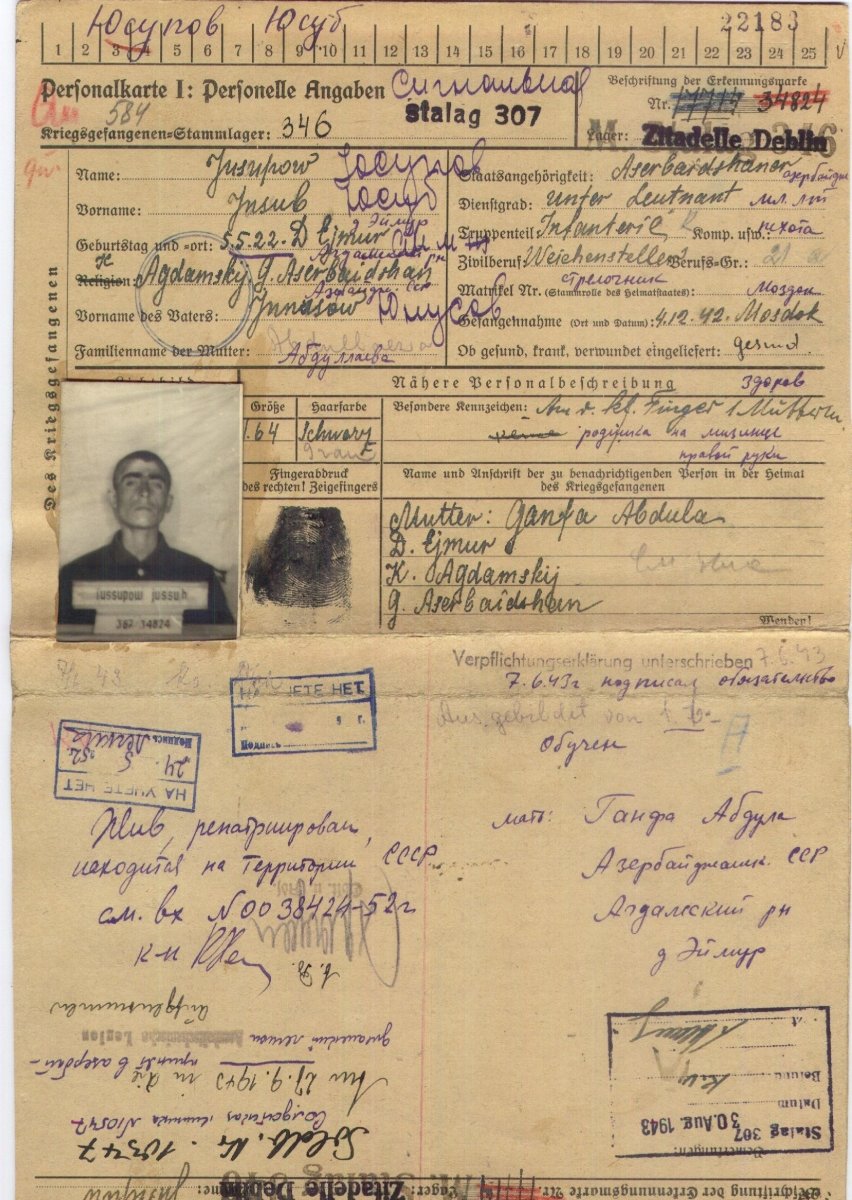 Юсупов Юсуб
22183
1 2 3 4 5 6 7 8 9 10 11 12 13 14 15 16 17 18 19 20 21 22 23 24 25
Personalkarte I: Personelle Angaben
584
Kriegsgefangenen=Stammlager: 346
stalag 307
Beschriftung der Erkennungsmarke
Nr. 17714 34824
Lager: Zitadelle Deblin
Des Kriegsgefangenen
Name: Jusupow Юсупов
Vorname: Jusub Юсуб
д Эймур
Geburtstag und =ort: 5.5.22. D Ejmur
Religion: Agdamskij. G. Aserbaidshan
Vorname des Vaters: Junusow Юнусов
Familienname der Mutter:
Абдуллаева
Staatsangehörigkeit: Aserbaidshaner
Dienstgrad: Unter Leutnant
Truppenteil Infanterie Komp. usw.: пехота
Zivilberuf: Weichensteller Berufs=Gr.: 21 a
стрелочник
Matrikel Nr. (Stammrolle des Heimatstaates): Моздок
Gefangennahme (Ort und Datum): 4.12.42. Mosdok
Ob gesund, krank, verwundet eingeliefert: gesund.
здоров
Nähere Personalbeschreibung
Größe Haarfarbe
1.64 Schwarz
Besondere Kennzeichen: Am r. kl. Finger 1 Mutterm.
родинка на мизинце
правой руки
Fingerabdruck
des rechten! Zeigefingers
Name und Anschrift der zu benachrichtigenden Person in der Heimat
des Kriegsgefangenen
Mutter: Ganfa Abdula
D. Ejmur
K. Agdamskij
G. Aserbaidshan
Wenden!
Iussupow Jussub
307 34824
Verpflichtungserklärung unterschrieben 7.6.43
7.6.43г подписал обязательство
Ausgebildet von
Обучен
НА УЧЕТЕ НЕТ
Подпись
НА УЧЕТЕ НЕТ
24 5 1952
Подпись
Жив, репатриирован,
находится на территории СССР
см. вх №0038424-52г
к-н
мать: Ганфа Абдула
Азербайджанск. ССР
Агдамский рн
д Эймур
Stalag 307
30. Aug. 1943
Datum
Befund
Bemerkungen:
Am 27.9.1943 in die
Aserbaidschanische Legion
принят в азербай-
джанский легион
Soldb. Nr. 10347
Zitadelle Deblin
Lager:
Beschriftung der Erkennungsmarke Nr.